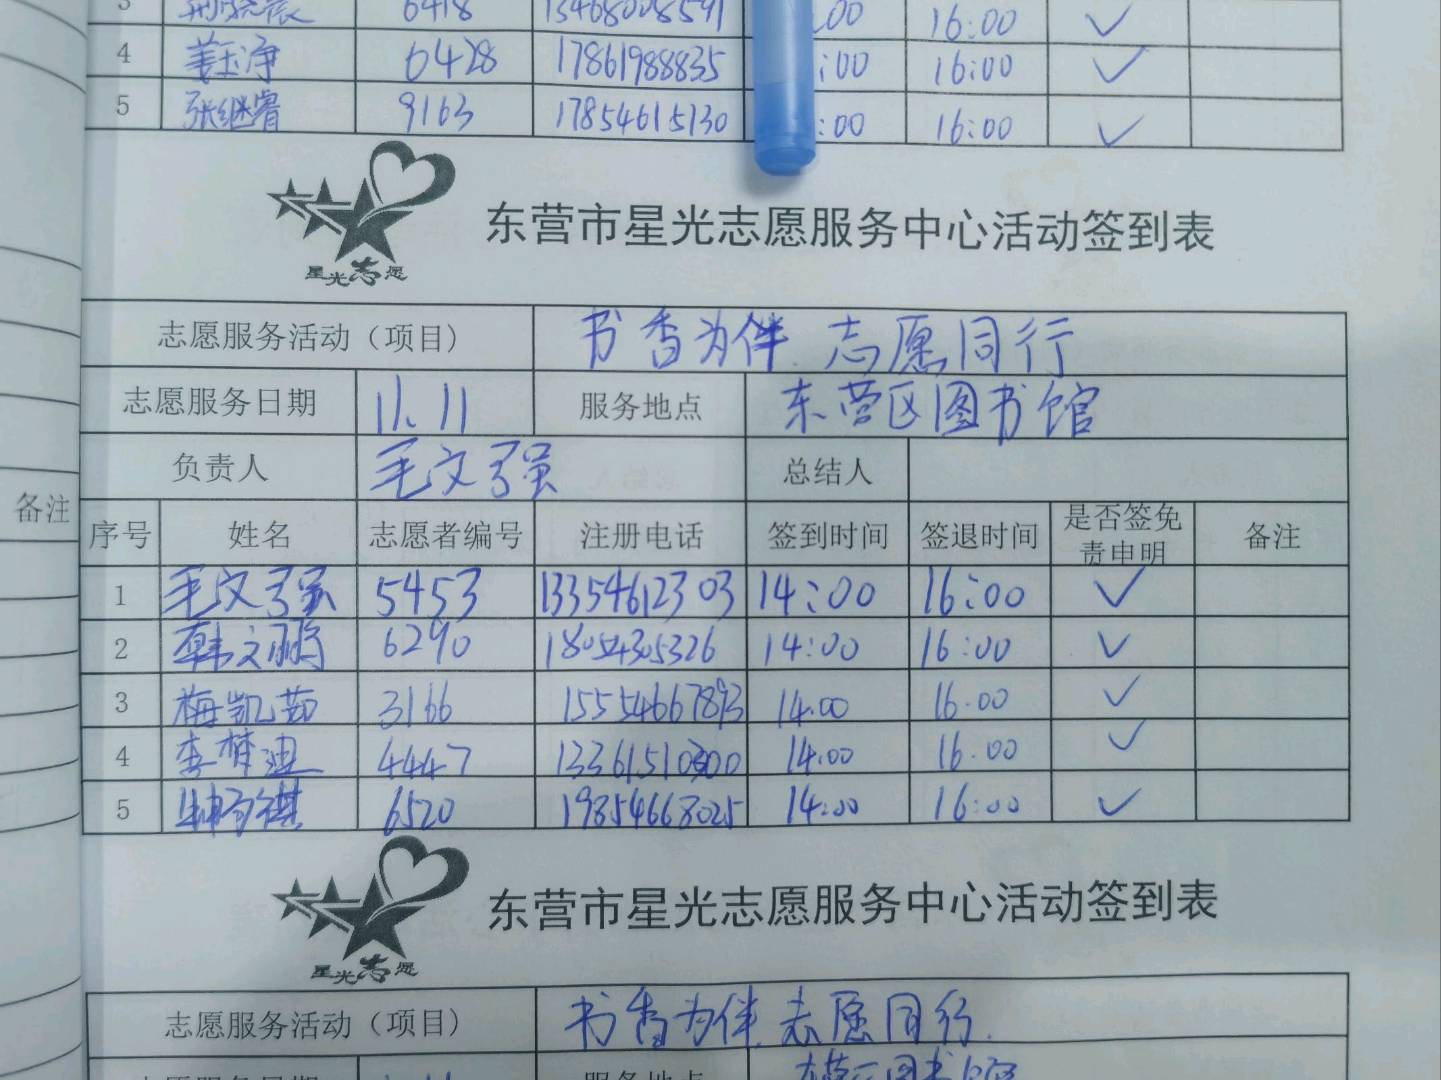 3 6418 13468008591 :00 16:00 ✓
4 姜玉净 6428 17861988835 :00 16:00 ✓
5 张继睿 9163 17854615130 :00 16:00 ✓
星光志愿
东营市星光志愿服务中心活动签到表
志愿服务活动（项目） 书香为伴 志愿同行
志愿服务日期 11.11 服务地点 东营区图书馆
负责人 毛文强 总结人
备注
序号 姓名 志愿者编号 注册电话 签到时间 签退时间 是否签免责申明 备注
1 毛文强 5453 13354612303 14:00 16:00 ✓
2 韩文鹏 6290 18054305326 14:00 16:00 ✓
3 梅凯茹 3166 15554667893 14.00 16.00 ✓
4 李梦迪 4447 13361510300 14:00 16.00 ✓
5 6520 19854668025 14:00 16:00 ✓
星光志愿
东营市星光志愿服务中心活动签到表
志愿服务活动（项目） 书香为伴 志愿同行.
志愿服务日期 服务地点 东营区图书馆